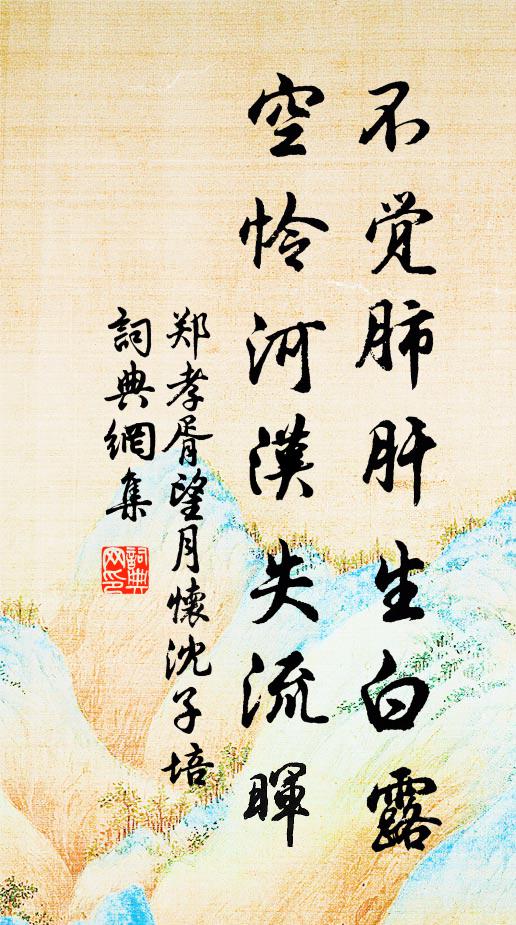 不觉肺肝生白露
空怜河漢失流暉
郑孝胥望月懷沈子培
詞典網集
詞典
网印